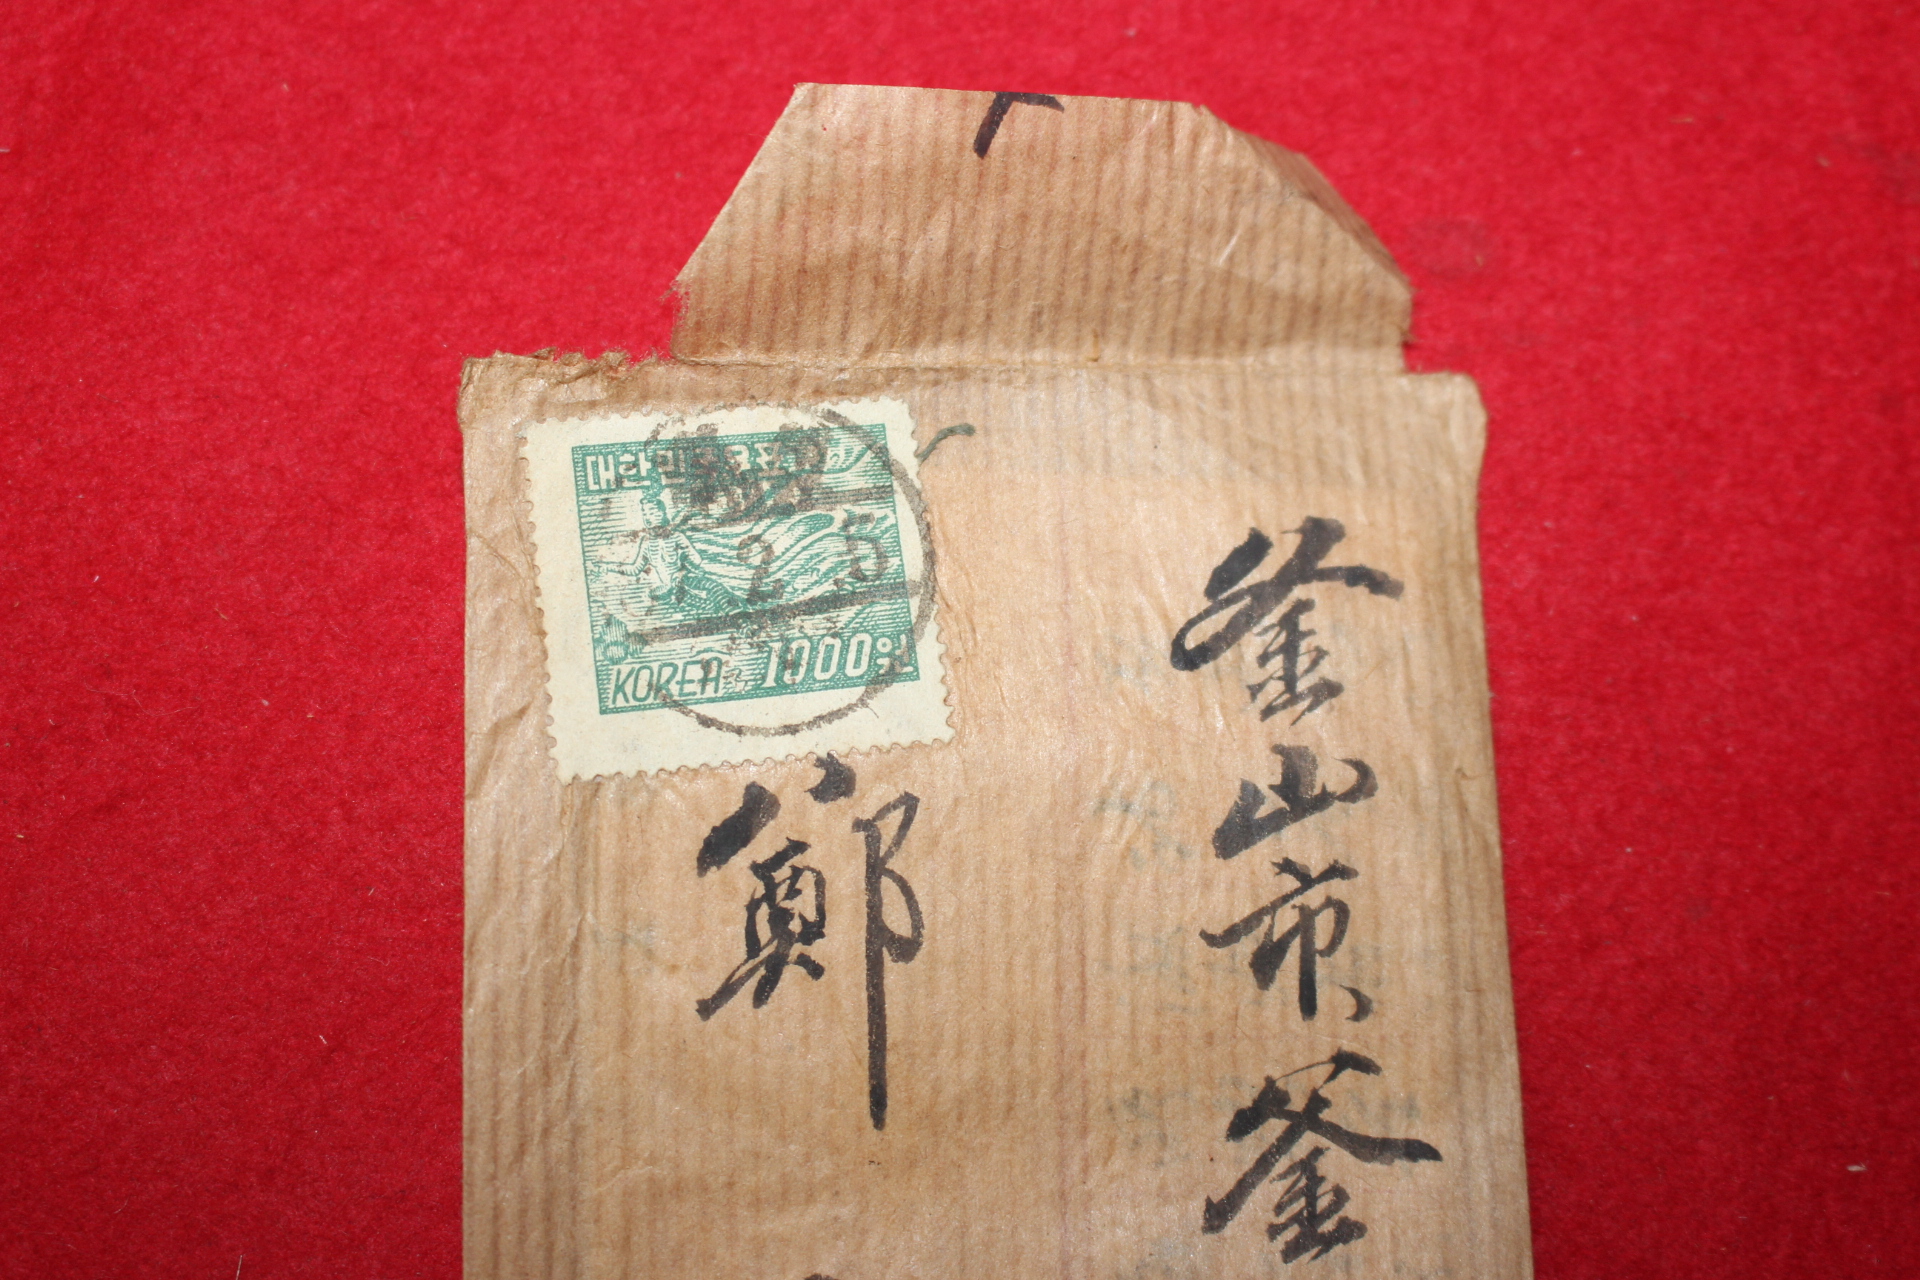 대한민국우표
KOREA 1000원
2 .5
釜山市釜
鄭